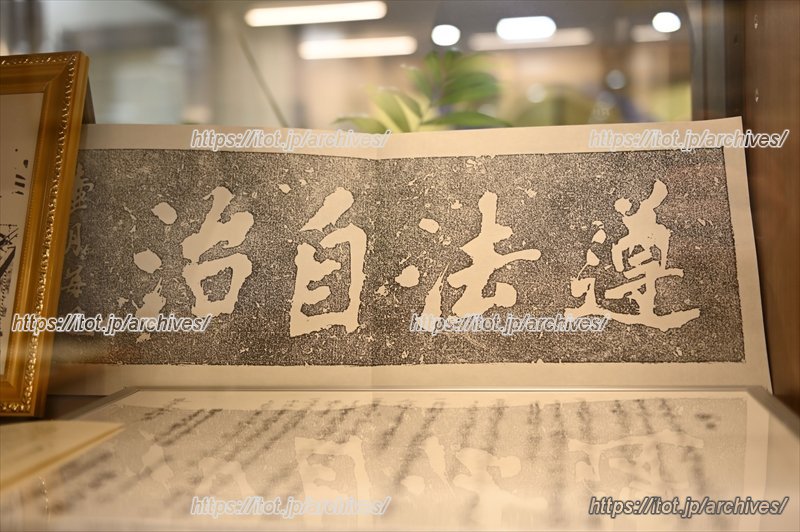 https://itot.jp/archives/
https://itot.jp/archives/
遵法自治
壷月海
https://itot.jp/archives/
https://itot.jp/archives/
https://itot.jp/archives/
https://itot.jp/archives/